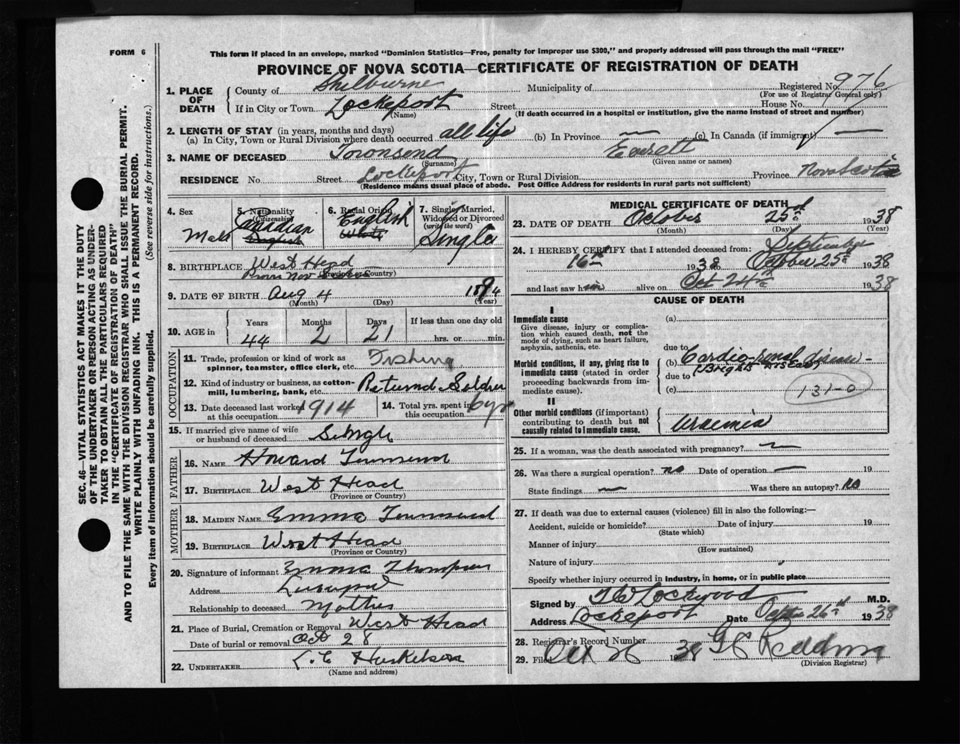 FORM 6
This form if placed in an envelope, marked "Dominion Statistics—Free, penalty for improper use $300," and properly addressed will pass through the mail "FREE"
PROVINCE OF NOVA SCOTIA—CERTIFICATE OF REGISTRATION OF DEATH
SEC. 46—VITAL STATISTICS ACT MAKES IT THE DUTY
OF THE UNDERTAKER OR PERSON ACTING AS UNDER-
TAKER TO OBTAIN ALL THE PARTICULARS REQUIRED
IN THE "CERTIFICATE OF REGISTRATION OF DEATH"
AND TO FILE THE SAME WITH THE DIVISION REGISTRAR WHO SHALL ISSUE THE BURIAL PERMIT.
WRITE PLAINLY WITH UNFADING INK. THIS IS A PERMANENT RECORD.
Every item of information should be carefully supplied. (See reverse side for instructions.)
1. PLACE OF DEATH
County of Shelburne Municipality of Registered No. 976
(For use of Registrar General only)
If in City or Town Lockeport Street House No.
(Name) (If death occurred in a hospital or institution, give the name instead of street and number)
2. LENGTH OF STAY (in years, months and days)
(a) In City, Town or Rural Division where death occurred all life (b) In Province — (c) In Canada (if immigrant) —
3. NAME OF DECEASED Townsend Everett
(Surname) (Given name or names)
RESIDENCE No. Street Lockeport City, Town or Rural Division Province Nova Scotia
(Residence means usual place of abode. Post Office Address for residents in rural parts not sufficient)
4. Sex Male
5. Nationality (Citizenship) Canadian
6. Racial Origin English White
7. Single, Married, Widowed or Divorced (write the word) Single
8. BIRTHPLACE West Head
(Province or Country)
9. DATE OF BIRTH Aug 4 1894
(Month) (Day) (Year)
10. AGE in Years Months Days If less than one day old
44 2 21 hrs. or min.
OCCUPATION
11. Trade, profession or kind of work as spinner, teamster, office clerk, etc. Fishing
12. Kind of industry or business, as cotton-mill, lumbering, bank, etc. Returned Soldier
13. Date deceased last worked at this occupation 1914
14. Total yrs. spent in this occupation 6 yrs
15. If married give name of wife or husband of deceased Single
FATHER
16. NAME Howard Townsend
17. BIRTHPLACE West Head
(Province or Country)
MOTHER
18. MAIDEN NAME Emma Townsend
19. BIRTHPLACE West Head
(Province or Country)
20. Signature of informant Emma Thompson
Address Liverpool
Relationship to deceased Mother
21. Place of Burial, Cremation or Removal West Head
Date of burial or removal Oct 28
22. UNDERTAKER
(Name and address)
MEDICAL CERTIFICATE OF DEATH
23. DATE OF DEATH October 25th 1938
(Month) (Day)
24. I HEREBY CERTIFY that I attended deceased from: September
16th 1938 October 25th 1938
and last saw him alive on Oct 24th 1938
CAUSE OF DEATH
I
Immediate cause
Give disease, injury or complication which caused death, not the mode of dying, such as heart failure, asphyxia, asthenia, etc.
(a)
due to
Morbid conditions, if any, giving rise to immediate cause (stated in order proceeding backwards from immediate cause).
(b) Cardio-renal disease
due to (Bright's Disease)
(c) 131-0
II
Other morbid conditions (if important) contributing to death but not causally related to immediate cause.
Uraemia
25. If a woman, was the death associated with pregnancy? —
26. Was there a surgical operation? no Date of operation — 19
State findings — Was there an autopsy? no
27. If death was due to external causes (violence) fill in also the following:—
Accident, suicide or homicide? Date of injury 19
(State which)
Manner of injury
(How sustained)
Nature of injury
Specify whether injury occurred in industry, in home, or in public place
Signed by Lockwood M.D.
Address Lockeport Date 26th 1938
28. Registrar's Record Number
29. Filed Oct 26 1938 Redding
(Division Registrar)